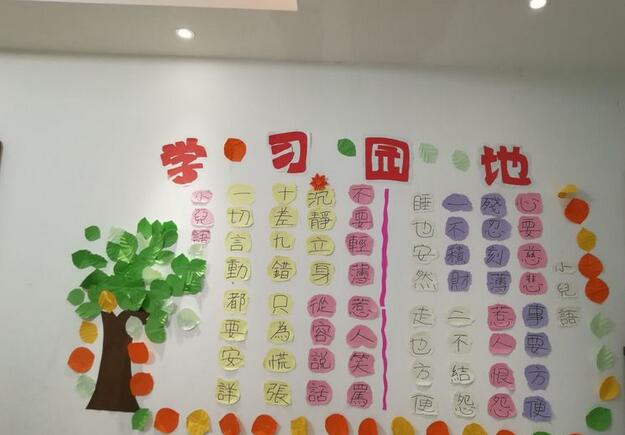 学习园地
小兒語
一切言動都要安詳
十差九錯只為慌張
沉靜立身從容說話
不要輕薄惹人笑罵
小兒語
心要慈悲事要方便
殘忍刻薄惹人恨怨
一不積財二不結怨
睡也安然走也方便